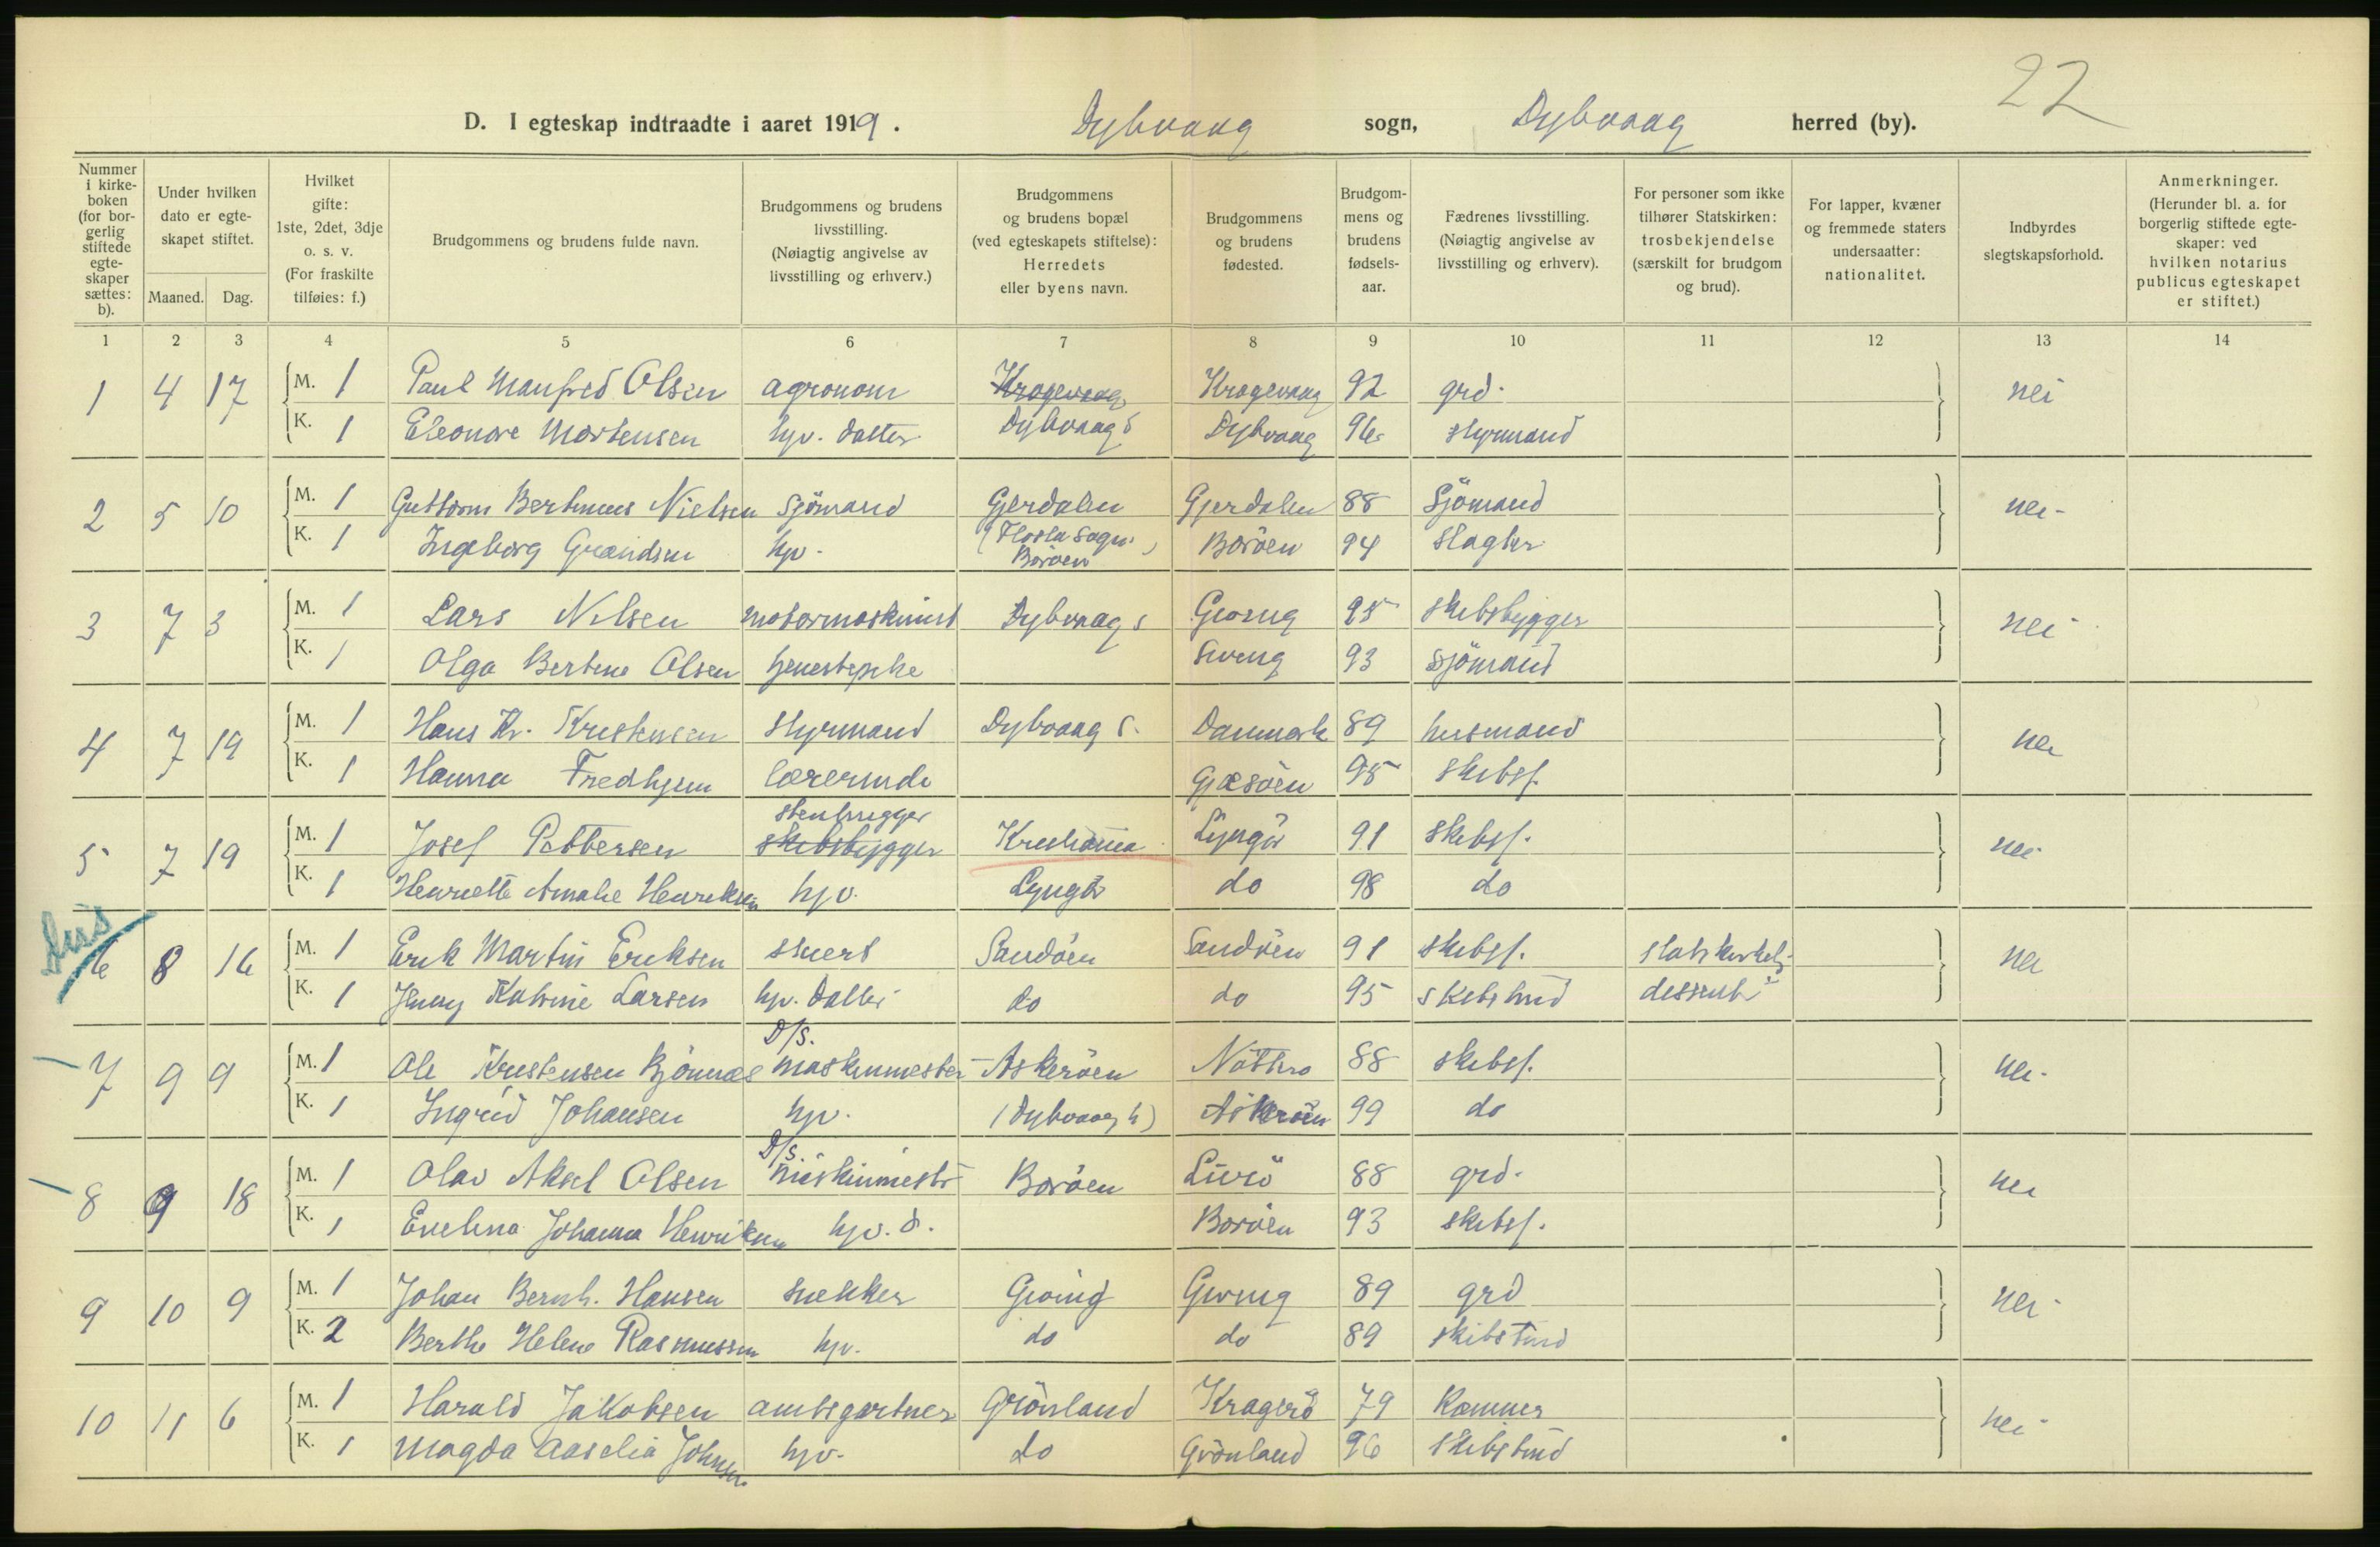 22
D. I egteskap indtraadte i aaret 1919. Dybvaag sogn, Dybvaag herred (by).
Nummer i kirke-boken (for bor-gerlig stiftede egte-skaper sættes: b).
Under hvilken dato er egte-skapet stiftet.
Maaned. Dag.
Hvilket gifte: 1ste, 2det, 3dje o. s. v. (For fraskilte tilføies: f.)
Brudgommens og brudens fulde navn.
Brudgommens og brudens livsstilling. (Nøiagtig angivelse av livsstilling og erhverv.)
Brudgommens og brudens bopæl (ved egteskapets stiftelse): Herredets eller byens navn.
Brudgommens og brudens fødested.
Brudgom-mens og brudens fødsels-aar.
Fædrenes livsstilling. (Nøiagtig angivelse av livsstilling og erhverv).
For personer som ikke tilhører Statskirken: trosbekjendelse (særskilt for brudgom og brud).
For lapper, kvæner og fremmede staters undersaatter: nationalitet.
Indbyrdes slegtskapsforhold.
Anmerkninger. (Herunder bl. a. for borgerlig stiftede egte-skaper: ved hvilken notarius publicus egteskapet er stiftet.)
1 2 3 4 5 6 7 8 9 10 11 12 13 14
1 4 17 M. 1 Paul Manfred Olsen agronom Kragevaag Kragevaag 92 grd. nei
K. 1 Eleonore Mortensen hjv. datter Dybvaag s Dybvaag 96 styrmand
2 5 10 M. 1 Guttorm Bertinius Nielsen Sjömand Gjerdalen Gjerdalen 88 Sjömand nei
K. 1 Ingeborg Grændsen hjv. (Flosta Sogn) Boröen Boröen 94 Slagter
3 7 3 M. 1 Lars Nilsen motormaskinist Dybvaag s Gioing 95 skibsbygger nei
K. 1 Olga Bertine Olsen tjenestepike 93 sjömand
4 7 19 M. 1 Hans Kr. Kristensen styrmand Dybvaag s. Danmark 89 husmand nei
K. 1 Hanna Fredhjem lærerinde Gjæsöen 95 skibsf.
5 7 19 M. 1 Josef Pettersen stenhugger skibsbygger Kristiania Lyngör 91 skibsf. nei
K. 1 Henriette Amalie Henriksen hjv. Lyngör do 98 do
6 8 16 M. 1 Erik Martin Eriksen stuert Sandöen Sandöen 91 skibsf. statskirkelig nei
K. 1 Jenny Katrine Larsen hjv. datter do do 95 skibstmd dissenter
7 9 9 M. 1 Ole Kristensen Bjönnæs D/S. maskinmester Askeröen Nötterö 88 skibsf. nei
K. 1 Ingrid Johansen hjv. (Dybvaag h) Askeröen 99 do
8 9 18 M. 1 Olav Aksel Olsen D/S. maskinmestr Boröen 88 grd. nei
K. 1 Evelina Johanna Henriksen hjv. d. Boröen 93 skibsf.
9 10 9 M. 1 Johan Bernh. Hansen snekker Gioing Gioing 89 grd nei
K. 2 Berthe Helene Rasmussen hjv. do do 89 skibstmd
10 11 6 M. 1 Harald Jakobsen amtsgartner Grönland Kragerö 79 Kæmner nei
K. 1 Magda Aaselia Johnsen hjv. do Grönland 96 skibstmd